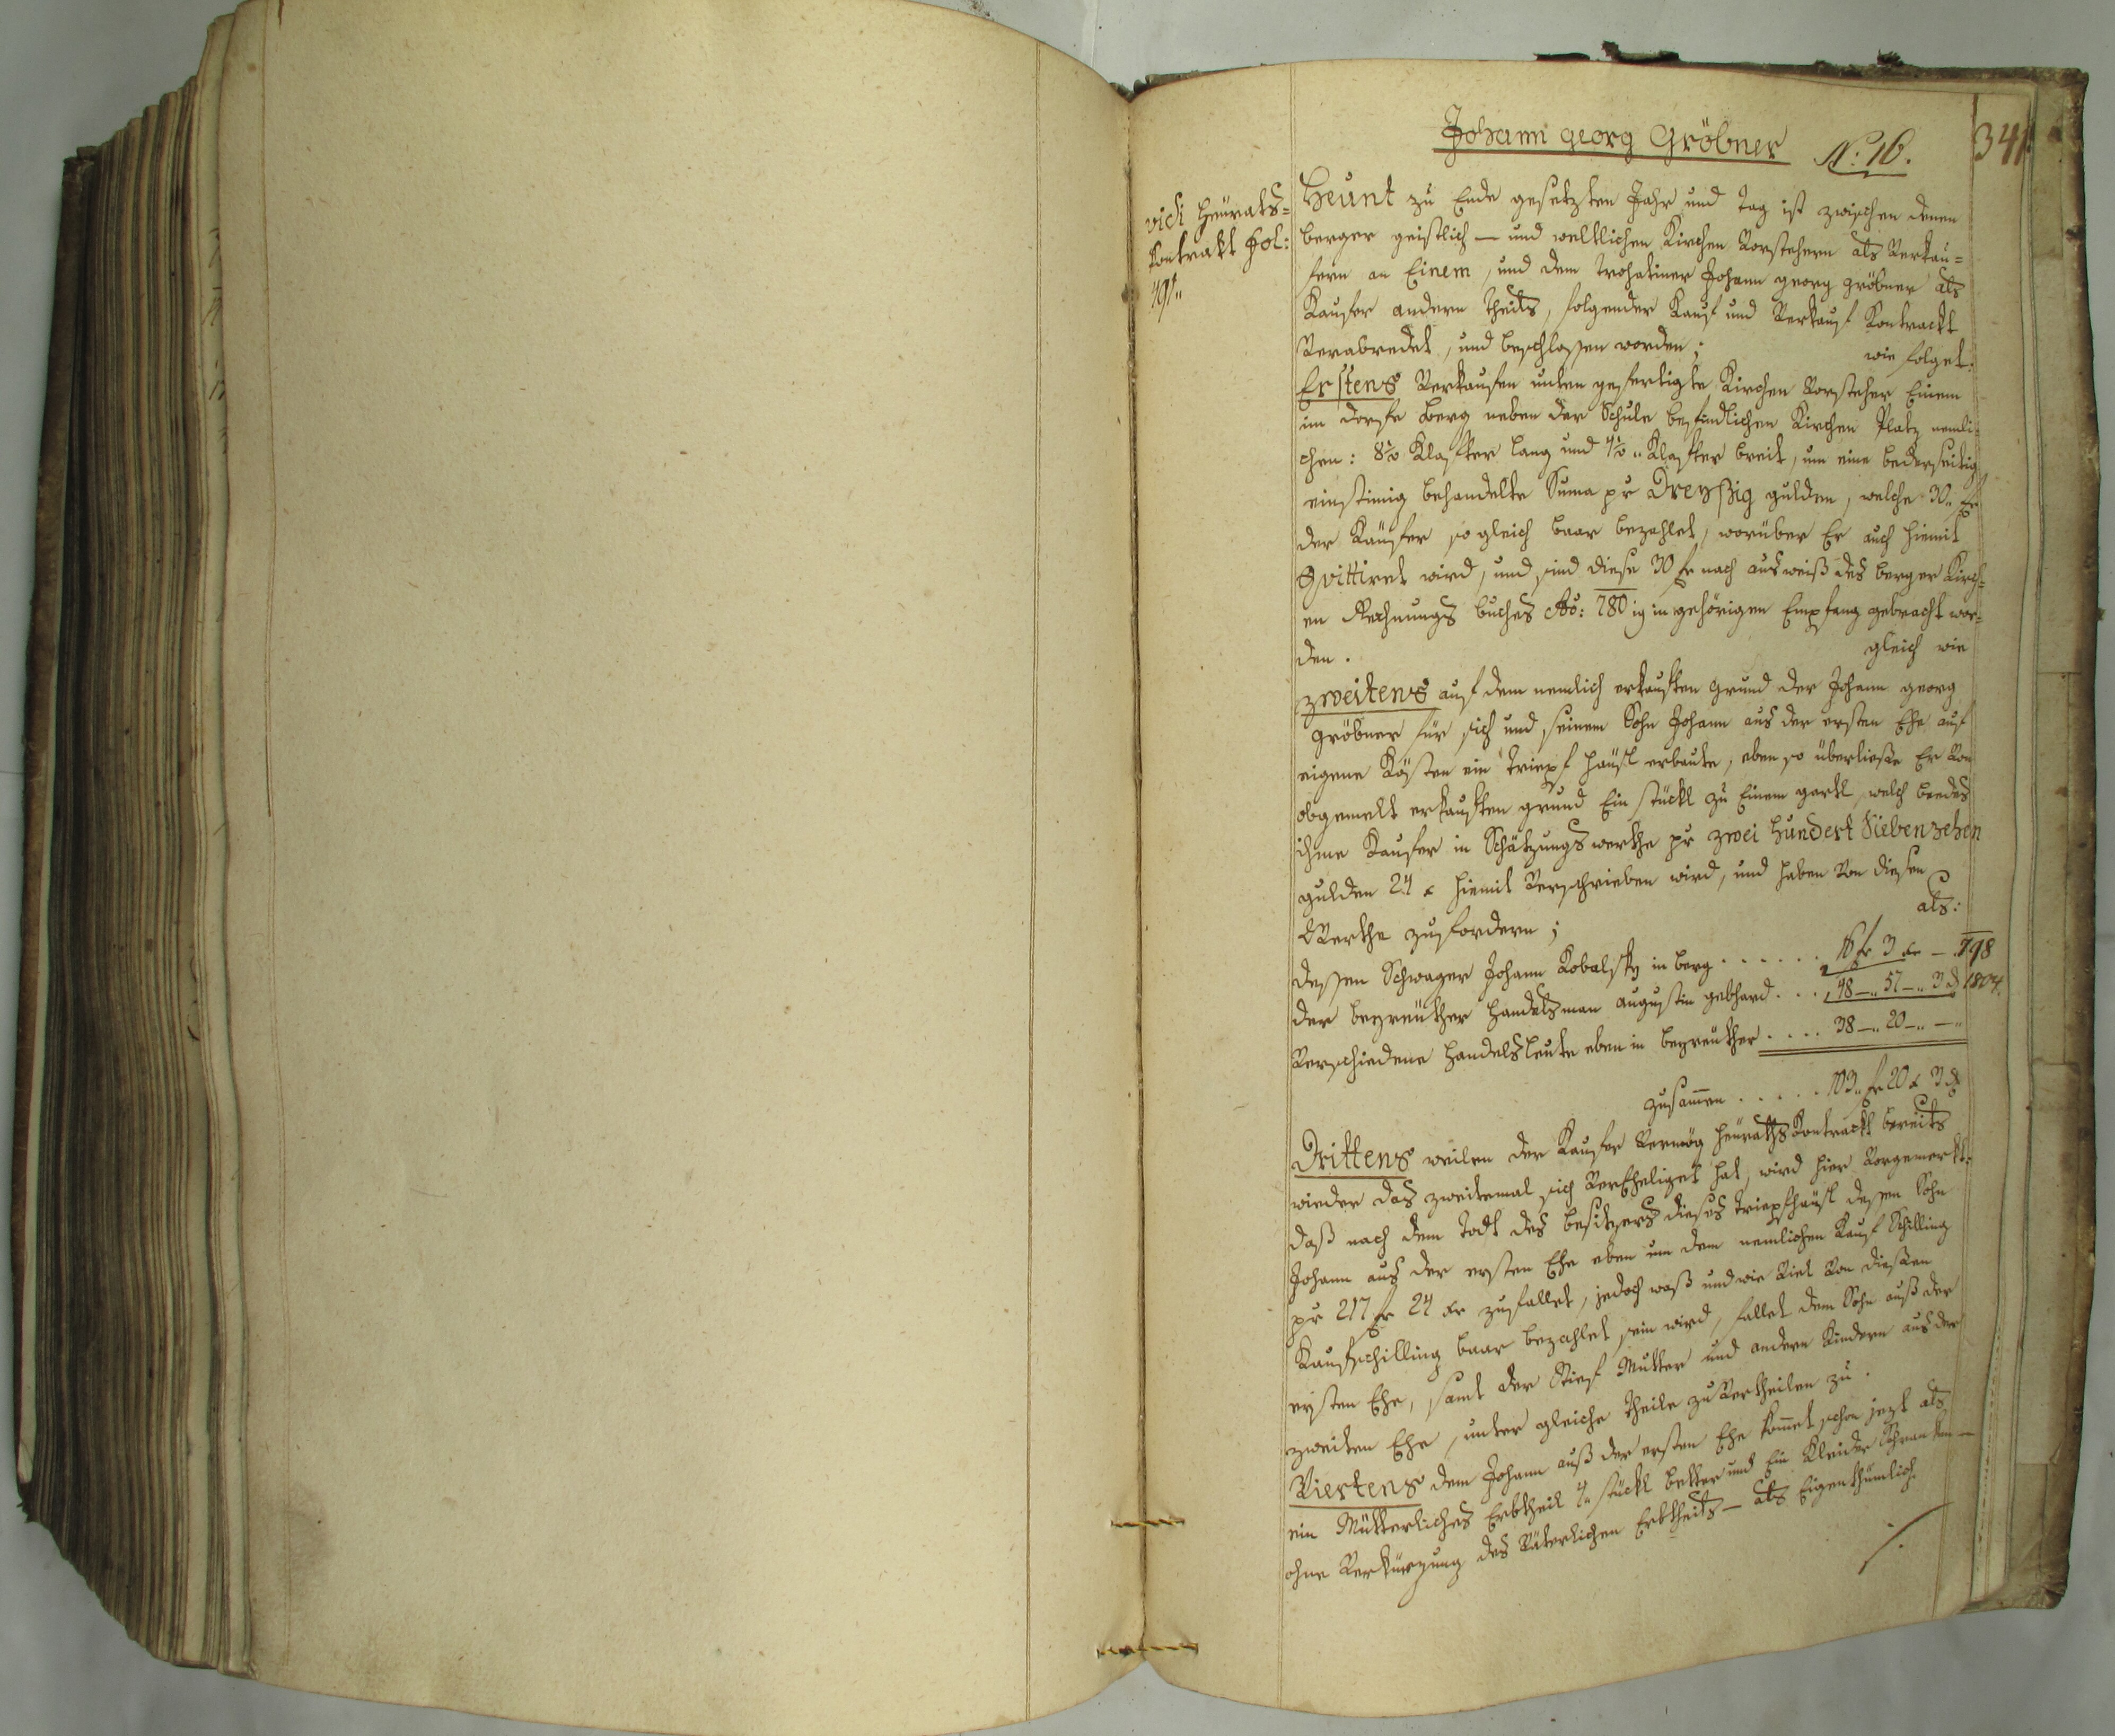 Johann georg Gröbner N: 16. 341
vidi Heurats=
Kontrakt Fol:
491.,
Heunt zu Ende gesetzten Jahr und Tag ist zwischen denen
berger geistlich — und weltlichen Kirchen Vorstehern als Verkäu=
fern an Einem, und dem Johann georg gröbner als
Kaufer andern Theils, folgender Kauf und Verkauf Kontrackt
Verabredet, und beschlossen worden; wie folget:
Erstens Verkaufen unten gefertigte Kirchen Vorsteher Einem
im Dorfe Berg neben der Schule befindlichen Kirchen Platz nemli=
chen: Klafter lang und Klafter breit, um eine bederseitig
einstimig behandelte Suma pr Dreyßig gulden, welche 30., fr
der Käufer so gleich baar bezahlet, worüber Er auch hiemit
Qvittiret wird, und sind diese 30 fr nach ausweiß des berger Kirch=
en Rechnungs buches Ao: 780ig in gehörigen Empfang gebracht wor=
den. gleich wie
zweitens auf dem nemlich erkauften Grund der Johann georg
gröbner für sich und seinem Sohn Johann aus der ersten Ehe auf
eigene Kösten ein Triepf Häusl erbaute, eben so überließe Er Von
obgemelt erkauften grund Ein stückl zu Einem gartl, welch beedes
ihme Kaufer in Schätzungs werthe pr zwei Hundert Siebenzehen
gulden 24 x hiemit Verschrieben wird, und haben Von diesen
Werthe zufordern; als:
dessen Schwager Johann Kobalsky in berg . . . . . . 16 fr 3 xr — 798
der beyreuther Handelsman augustin gebhard . . . 48 —., 57 —., 3 d 1804.
Verschiedene Handelsleute eben in beyreuther . . . . 38 —., 20 —., —.,
zusamen . . . . . 103., fr 20 x 3 d
Drittens weilen der Kaufer Vermög Heuraths Kontrackt bereits
wieder das zweitemal sich Vereheliget hat, wird hier Vorgemerkt:
daß nach dem Todt des besitzers dieses Triepfhäusl dessen Sohn
Johann aus der ersten Ehe eben um dem nemlichen Kauf Schilling
pr 217 fr 24 xr zufallet, jedoch waß und wie Viel Von diessen
Kaufschilling baar bezahlet sein wird, fallet dem Sohn auß der
ersten Ehe, samt der Stief Mutter und andern Kindern aus der
zweiten Ehe, unter gleiche Theile zu Vertheilen zu.
Viertens dem Johann auß der ersten Ehe komet schon jezt als
ein Mütterliches Erbtheil 4., stückl better und Ein Kleider Schranken —
ohne Verkürzung des Väterlichen Erbtheils — als Eigenthümlich
./.